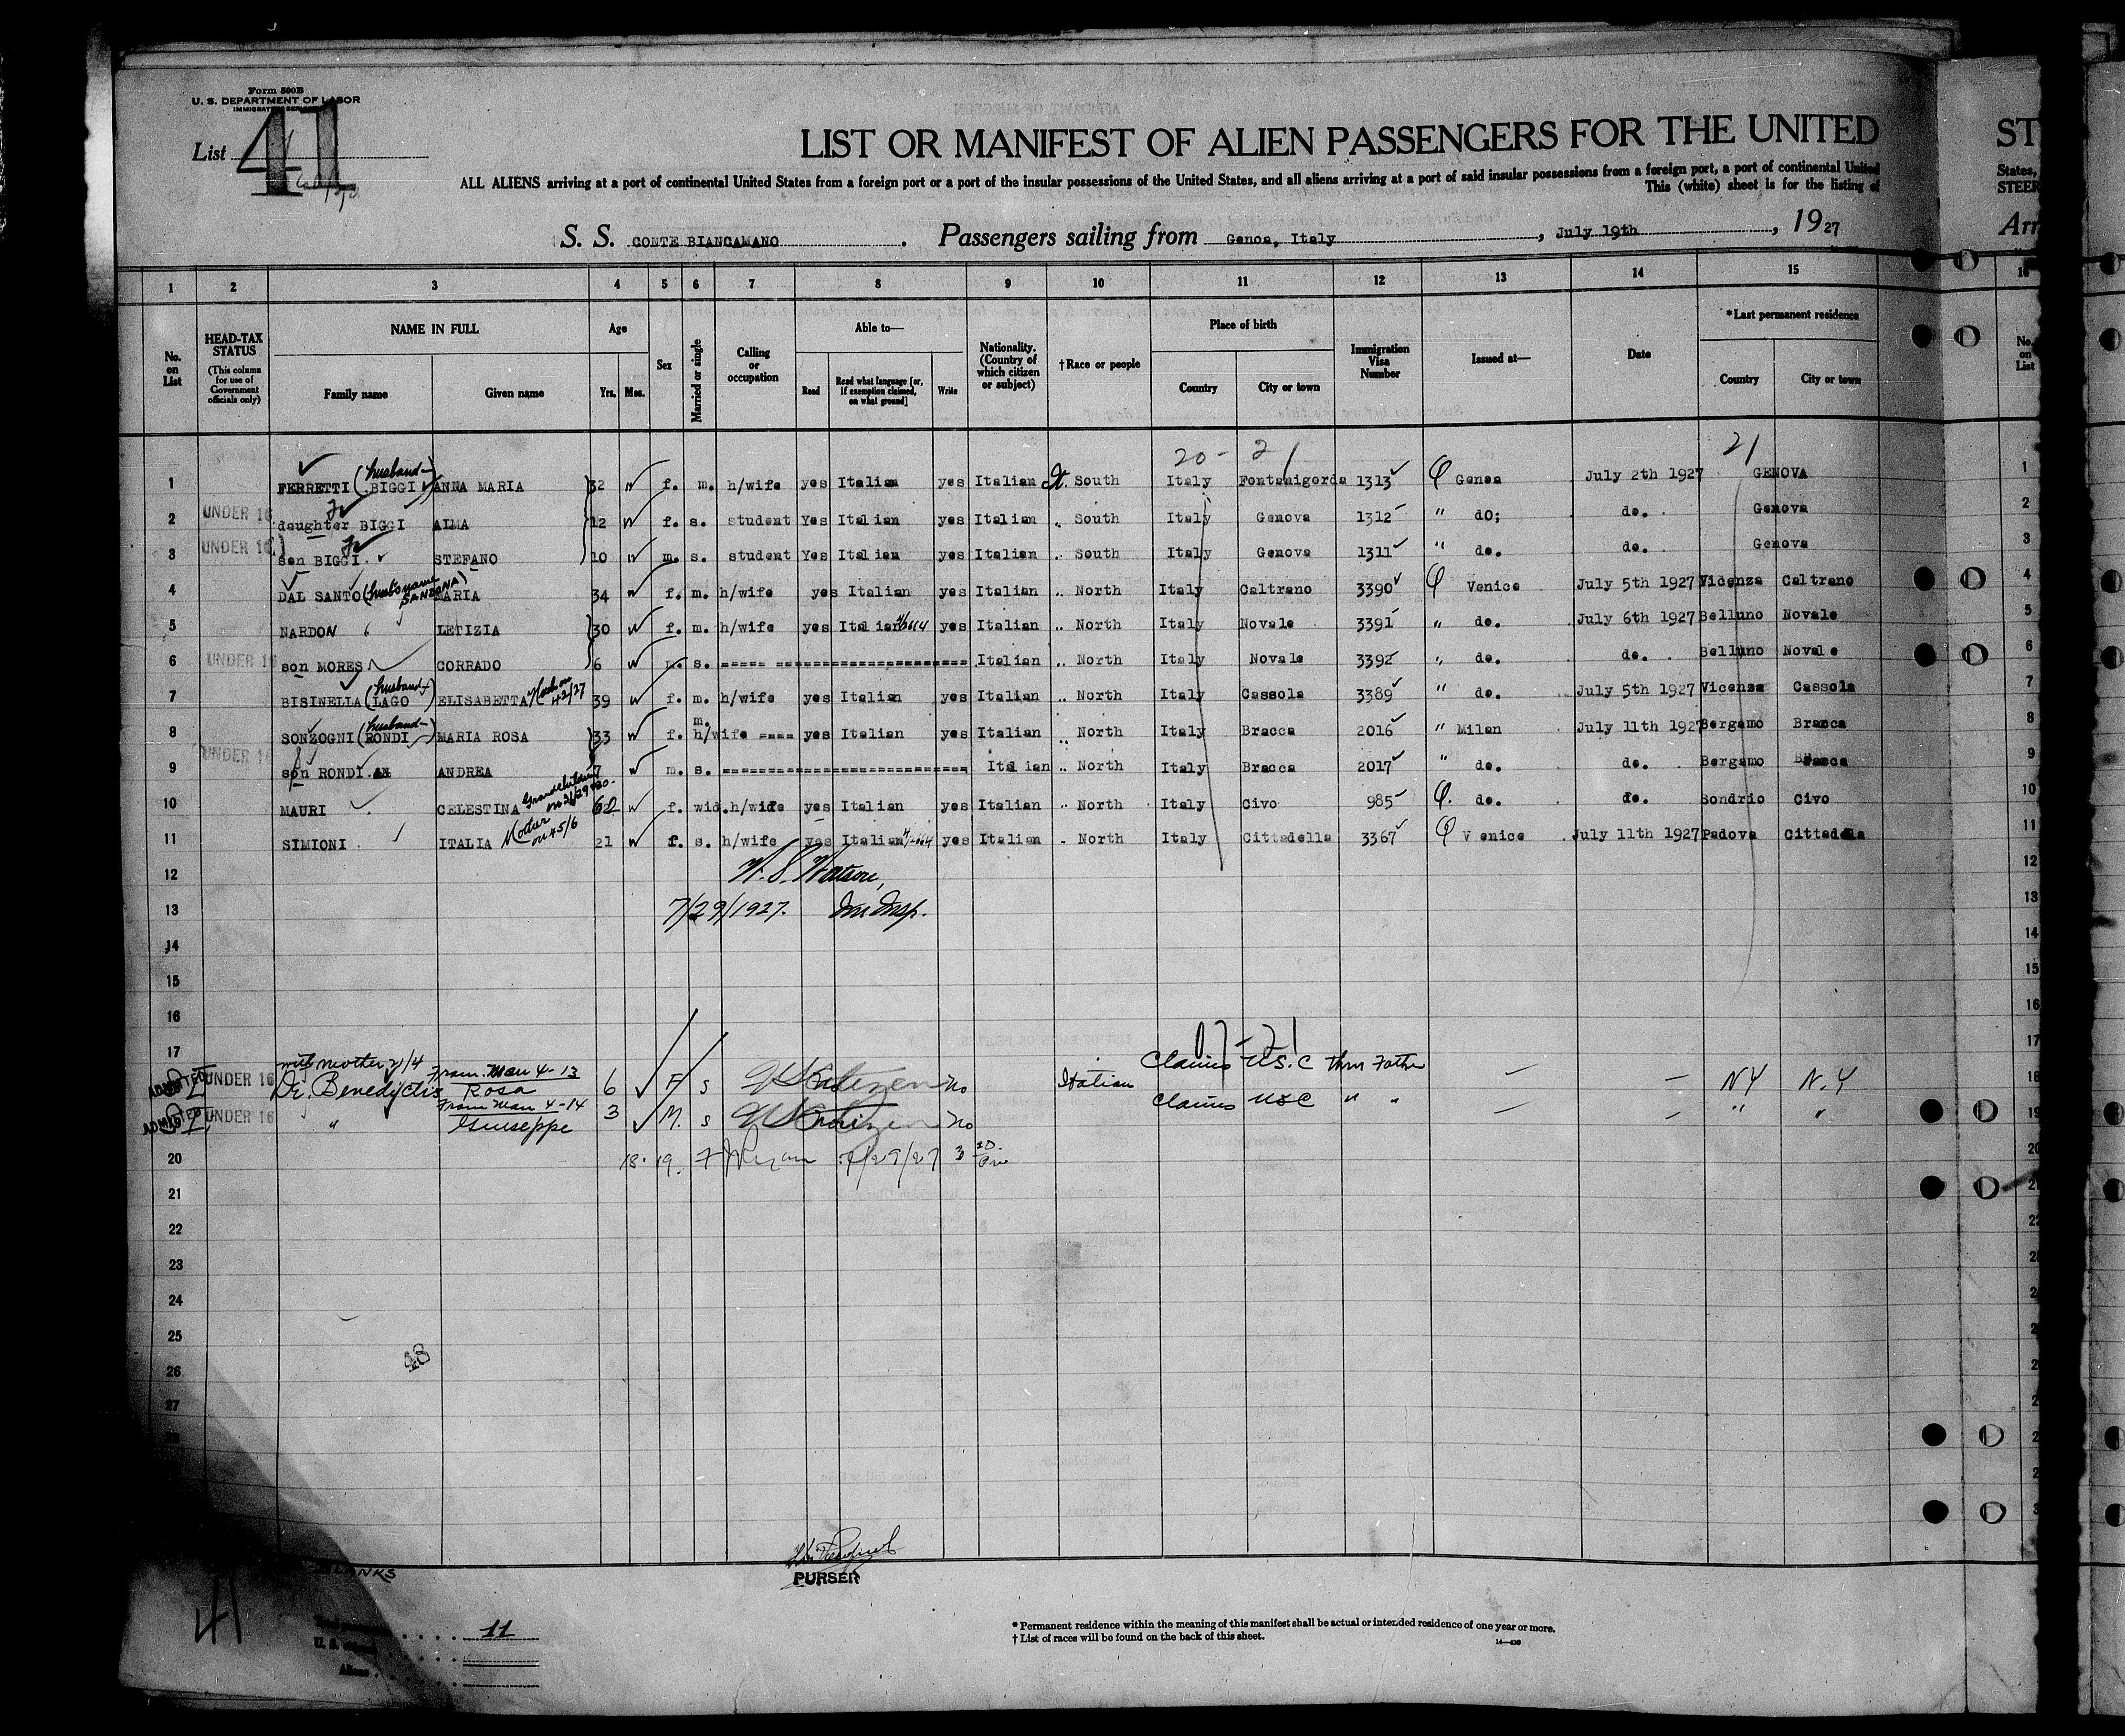 Form 500B
U. S. DEPARTMENT OF LABOR
IMMIGRATION SERVICE
List 41
LIST OR MANIFEST OF ALIEN PASSENGERS FOR THE UNITED
ST
ALL ALIENS arriving at a port of continental United States from a foreign port or a port of the insular possessions of the United States, and all aliens arriving at a port of said insular possessions from a foreign port, a port of continental United
States,
This (white) sheet is for the listing of
STEER
S. S. CONTE BIANCAMANO. Passengers sailing from Genoa, Italy, July 19th, 1927
Arr
1 2 3 4 5 6 7 8 9 10 11 12 13 14 15 16
No. on List
HEAD-TAX STATUS (This column for use of Government officials only)
NAME IN FULL
Family name Given name
Age
Yrs. Mos.
Sex
Married or single
Calling or occupation
Able to—
Read Read what language [or, if exemption claimed, on what ground] Write
Nationality. (Country of which citizen or subject)
†Race or people
Place of birth
Country City or town
Immigration Visa Number
Issued at—
Date
*Last permanent residence
Country City or town
No. on List
20- 21 21
1 FERRETTI (husband- BIGGI) ANNA MARIA 32 f. m. h/wife yes Italian yes Italian It. South Italy Fontanigorda 1313 Genoa July 2th 1927 GENOVA 1
2 UNDER 16 daughter BIGGI ALMA 12 f. s. student Yes Italian yes Italian " South Italy Genova 1312 " do; do. Genova 2
3 UNDER 16 son BIGGI STEFANO 10 m. s. student Yes Italian yes Italian " South Italy Genova 1311 " do. do. Genova 3
4 DAL SANTO (husb's name SANZONA) MARIA 34 f. m. h/wife yes Italian yes Italian " North Italy Caltrano 3390 Venice July 5th 1927 Vicenza Caltrano 4
5 NARDON LETIZIA 30 f. m. h/wife yes Italian yes Italian " North Italy Novale 3391 " do. July 6th 1927 Belluno Novale 5
6 UNDER 16 son MORES CORRADO 6 m. s. Italian " North Italy Novale 3392 " do. do. Belluno Novale 6
7 BISINELLA (husband- LAGO) ELISABETTA 39 f. m. h/wife yes Italian yes Italian " North Italy Cassola 3389 " do. July 5th 1927 Vicenza Cassola 7
8 SONZOGNI (husband- RONDI) MARIA ROSA 33 f. m. h/wife ---- yes Italian yes Italian " North Italy Bracca 2016 " Milan July 11th 1927 Bergamo Bracca 8
9 UNDER 16 son RONDI ANDREA 7 m. s. Italian " North Italy Bracca 2017 " do. do. Bergamo Bracca 9
10 MAURI CELESTINA 62 f. wid. h/wife yes Italian yes Italian " North Italy Civo 985 do. do. Sondrio Civo 10
11 SIMIONI ITALIA 21 f. s. h/wife yes Italian yes Italian - North Italy Cittadella 3367 Venice July 11th 1927 Padova Cittadella 11
12 W. S. Watson, 12
13 7/29/1927. Imm Insp. 13
14 14
15 15
16 16
17 with mother 21/4 17-21 17
ADMITTED UNDER 16 De Benedictis From Man 4-13 Rosa 6 F s US Citizen no Italian Claims U.S.C thru Father — — NY N.Y 18
ADMITTED UNDER 16 " From Man 4-14 Giuseppe 3 M. s US Citizen no Claims USC " " — — " " 19
20 18. 19. 7/29/27 20
21
22
23
24
25
26
27
48
PURSER
BLANKS
41
11
U. S. citizens
Aliens
* Permanent residence within the meaning of this manifest shall be actual or intended residence of one year or more.
† List of races will be found on the back of this sheet.
14—430